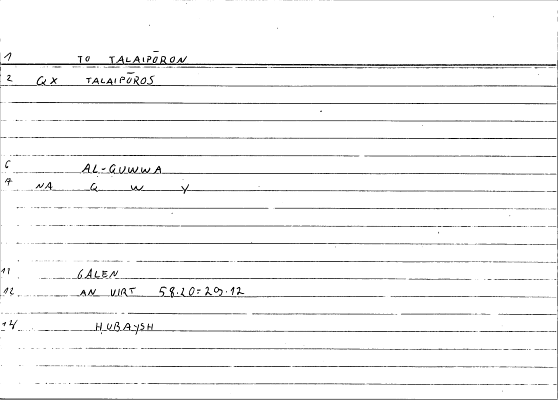 1 TO TALAIPŌRON
2 QX TALAIPŌROS
6 AL-QUWWA
7 NA Q W Y
11 GALEN
12 AN VIRT 58.20=29.12
14 HUBAYSH